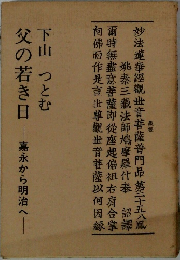 妙法蓮華經觀世音菩薩普門品第二十五
姚秦三藏法師鳩摩羅什奉 詔譯
爾時無盡意菩薩即從座起偏袒右肩合掌
向佛而作是言世尊觀世音菩薩以何因緣
下山 つとむ
父の若き日
―嘉永から明治へ―